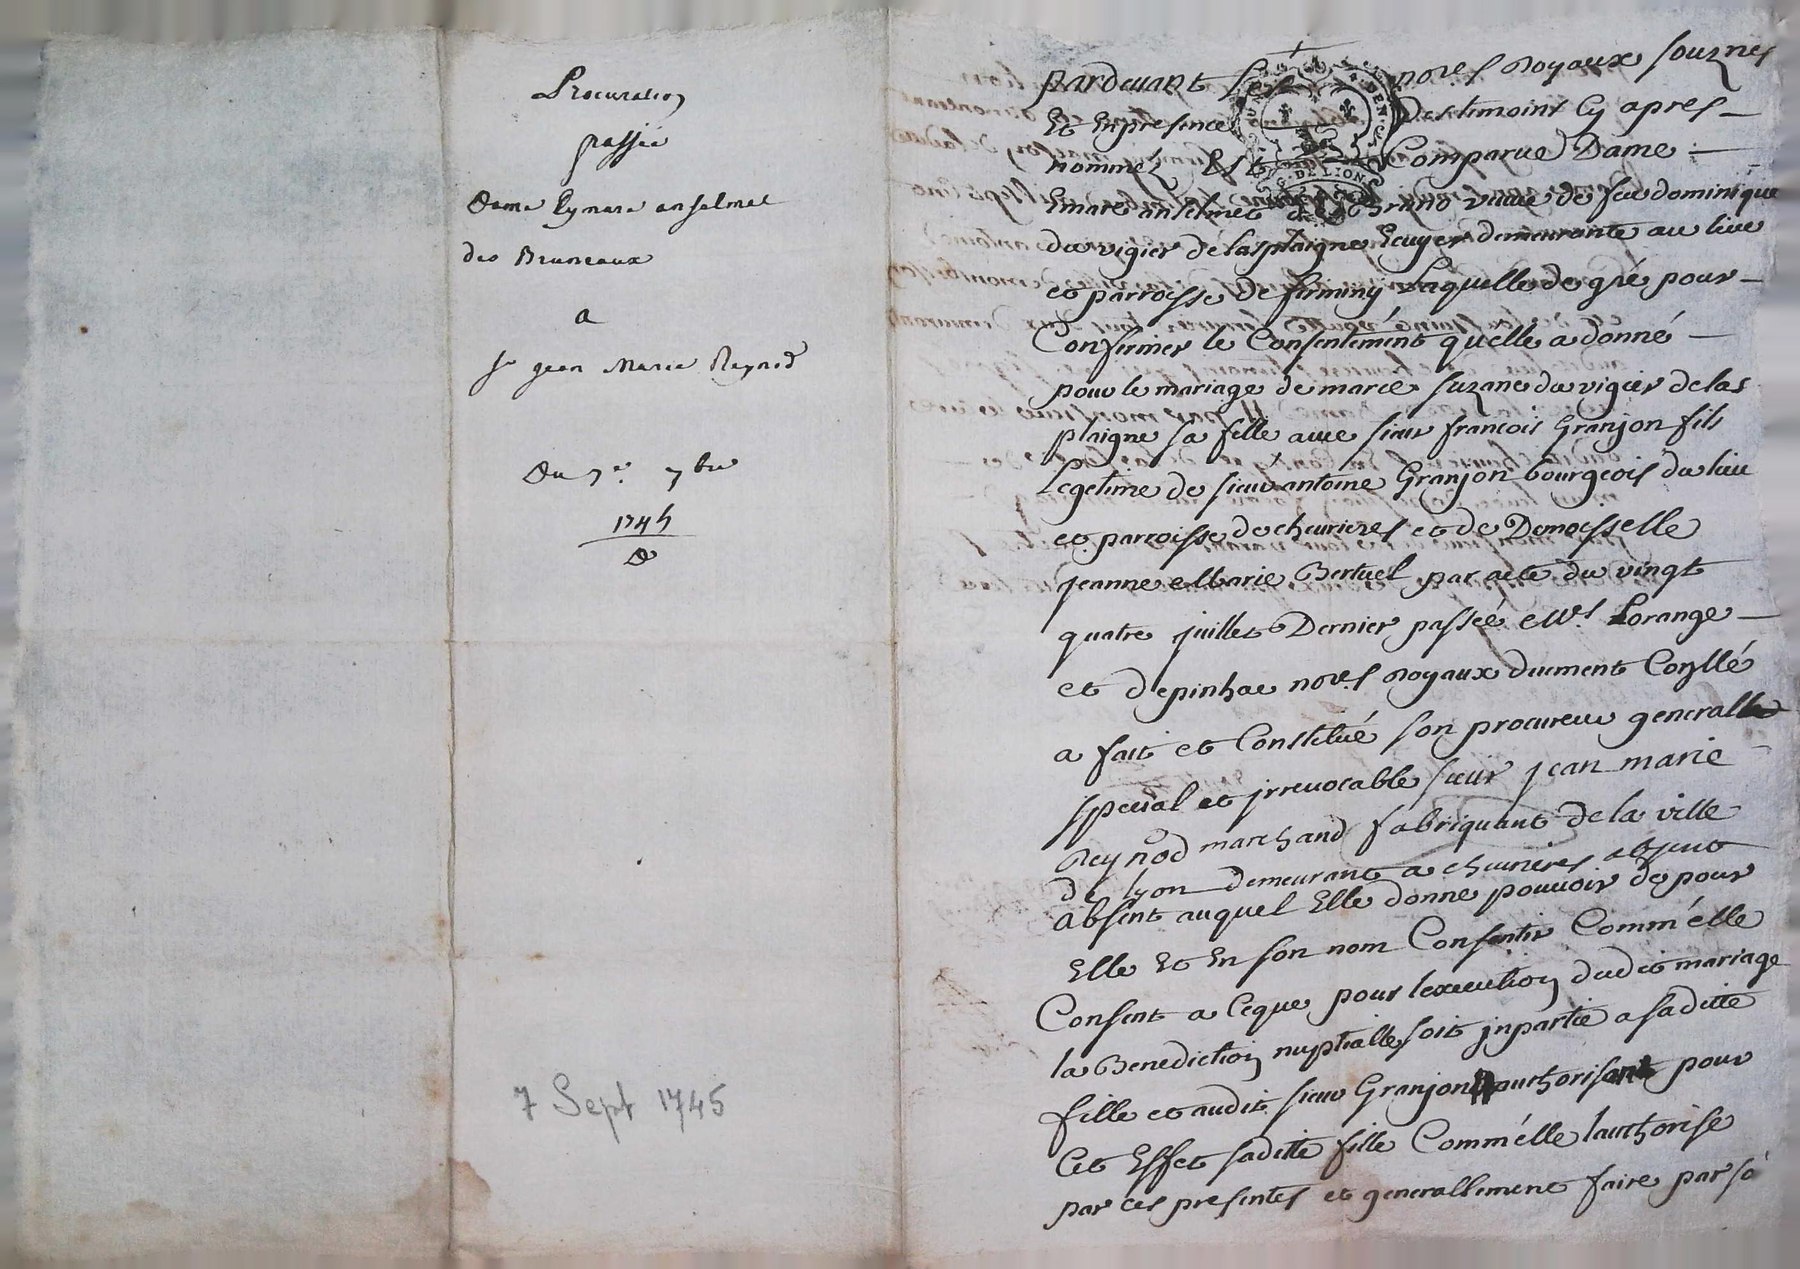 Procuration
passée
Dame Eymare anselmet
des Bruneaux
a
Sr jean Marie Reynod
Du 7e. 7bre
1745
7 Sept 1745
pardevant Les nores royaux souznes
Et Enpresence Des temoins Cy apres
nommez Est Comparue Dame
Emare anselmet des Bruno veuve de feu dominique
du vigier de lasplaigne Ecuyer demeurante au lieu
et parroisse de firminy Laquelle de gré pour
Confirmer le Consentement qu'elle a donné
pour le mariage de marie suzane du vigier de las
plaigne sa fille avec sieur francois Granjon fils
Legetime de sieur antoine Granjon bourgeois du lieu
et parroisse de chevrieres et de Demoisselle
jeanne Marie Bertuel par acte du vingt
quatre juillet Dernier passée Mes Lorange
et depinhac nores royaux duement Conllé
a fait et Constitué son procureur generalle
special et jrrevocable sieur jean marie
Reynod marchand fabriquant de la ville
de lyon demeurant a chevrieres absent
absent auquel Elle donne pouvoir de pour
Elle Et En son nom Consentir Comm'elle
Consent a Ceque pour lexecution dudit mariage
la Benediction nuptialle soit jnpartie a saditte
fille et audit sieur Granjon authorisant pour
Cet Effet saditte fille Comm'elle lauthorise
par ces presentes et generallement faire par sō
G. DE LION